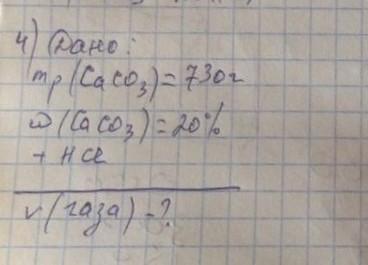 4) Дано:
mр(CaCO₃)=730г
ω(CaCO₃)=20%
+ HCl
v(газа)-?